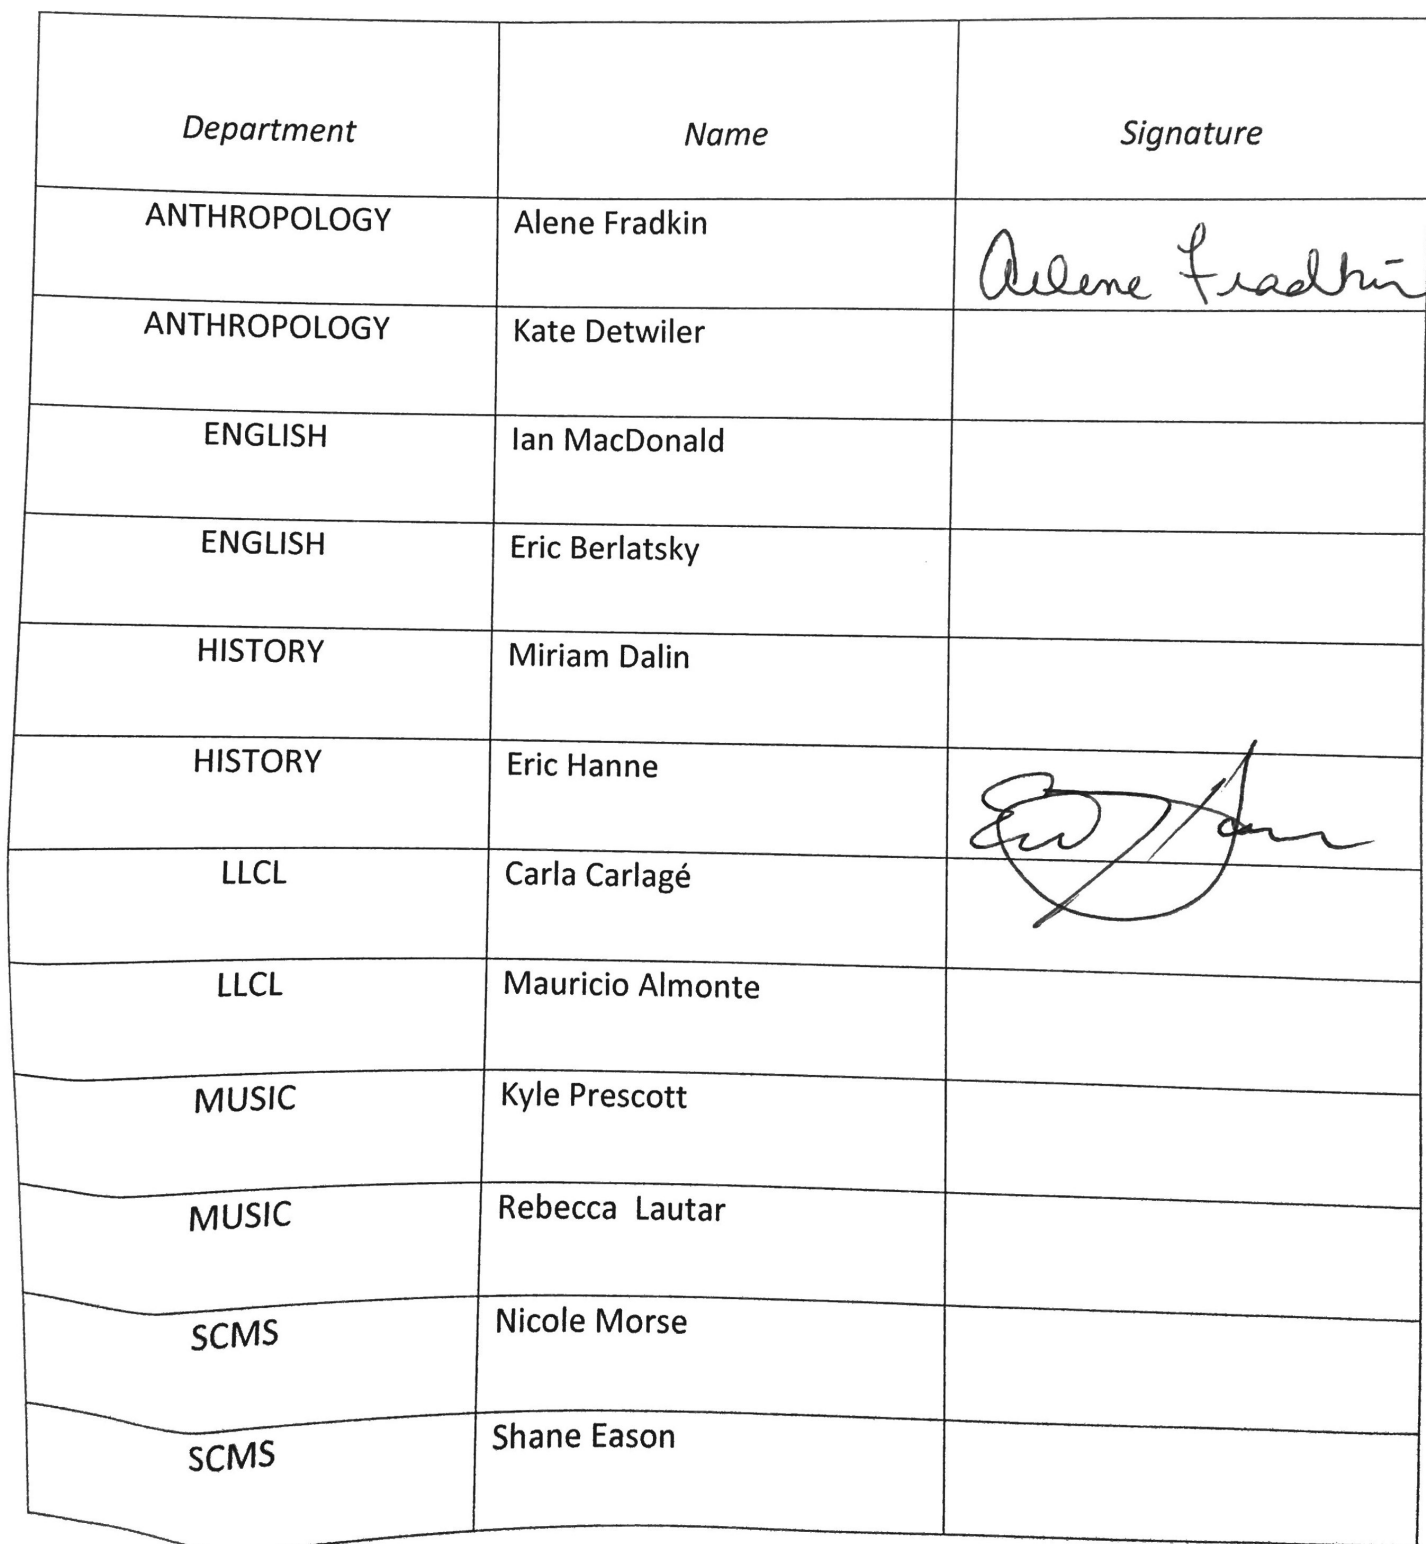 Department Name Signature
ANTHROPOLOGY Alene Fradkin Arlene Fradkin
ANTHROPOLOGY Kate Detwiler
ENGLISH Ian MacDonald
ENGLISH Eric Berlatsky
HISTORY Miriam Dalin
HISTORY Eric Hanne
LLCL Carla Carlagé
LLCL Mauricio Almonte
MUSIC Kyle Prescott
MUSIC Rebecca Lautar
SCMS Nicole Morse
SCMS Shane Eason